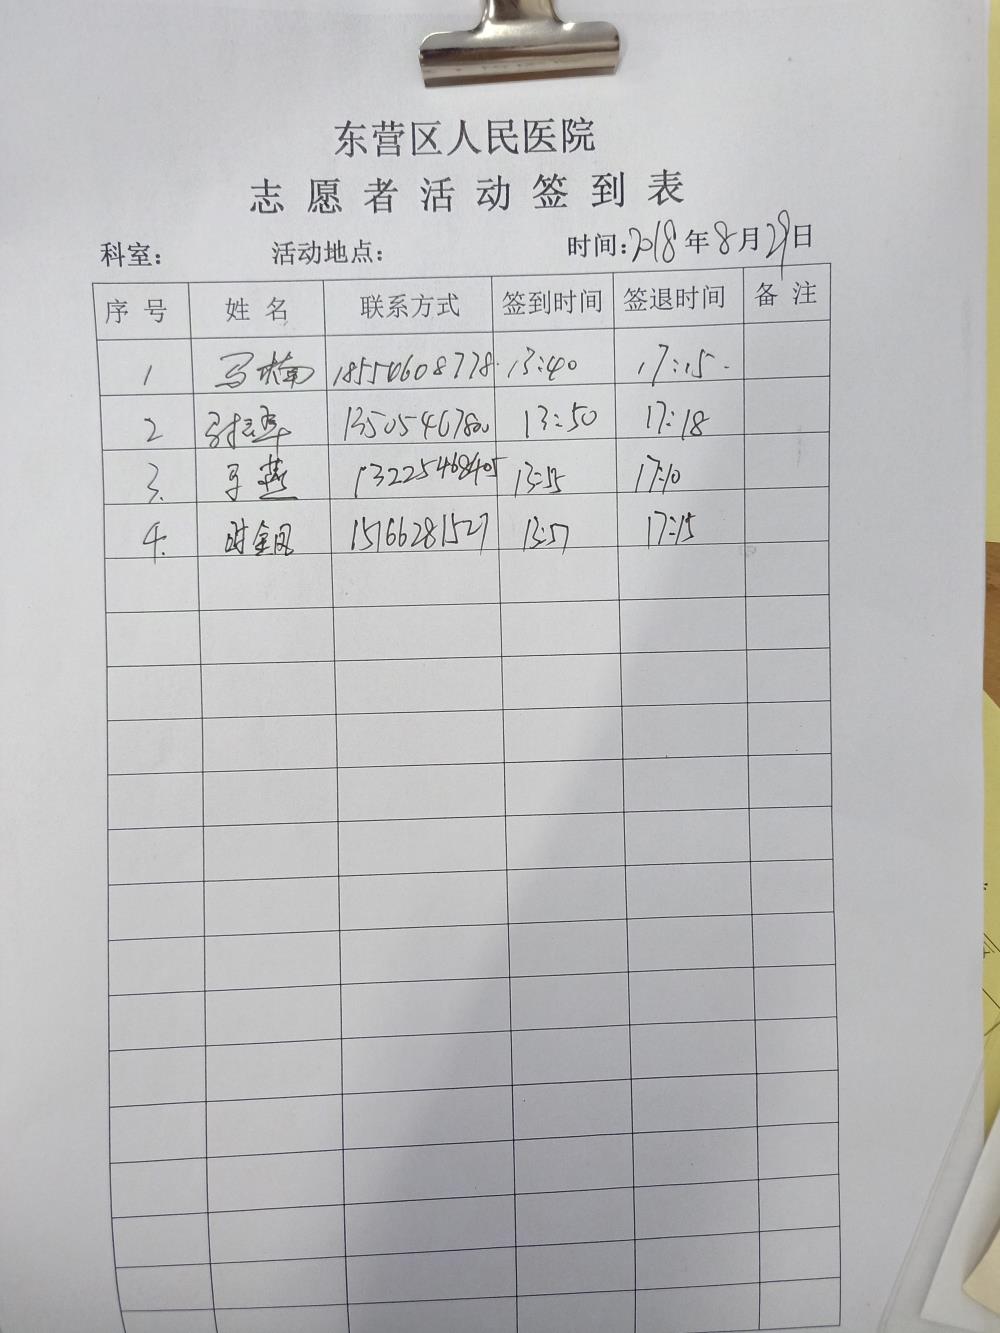 东营区人民医院
志愿者活动签到表
科室: 活动地点: 时间:2018年8月29日
序号 姓名 联系方式 签到时间 签退时间 备注
1 马楠 18554608778 13:40 17:15
2 13505467800 13:50 17:18
3. 13225468405 13:55 17:10
4. 时金凤 15166281527 13:57 17:15